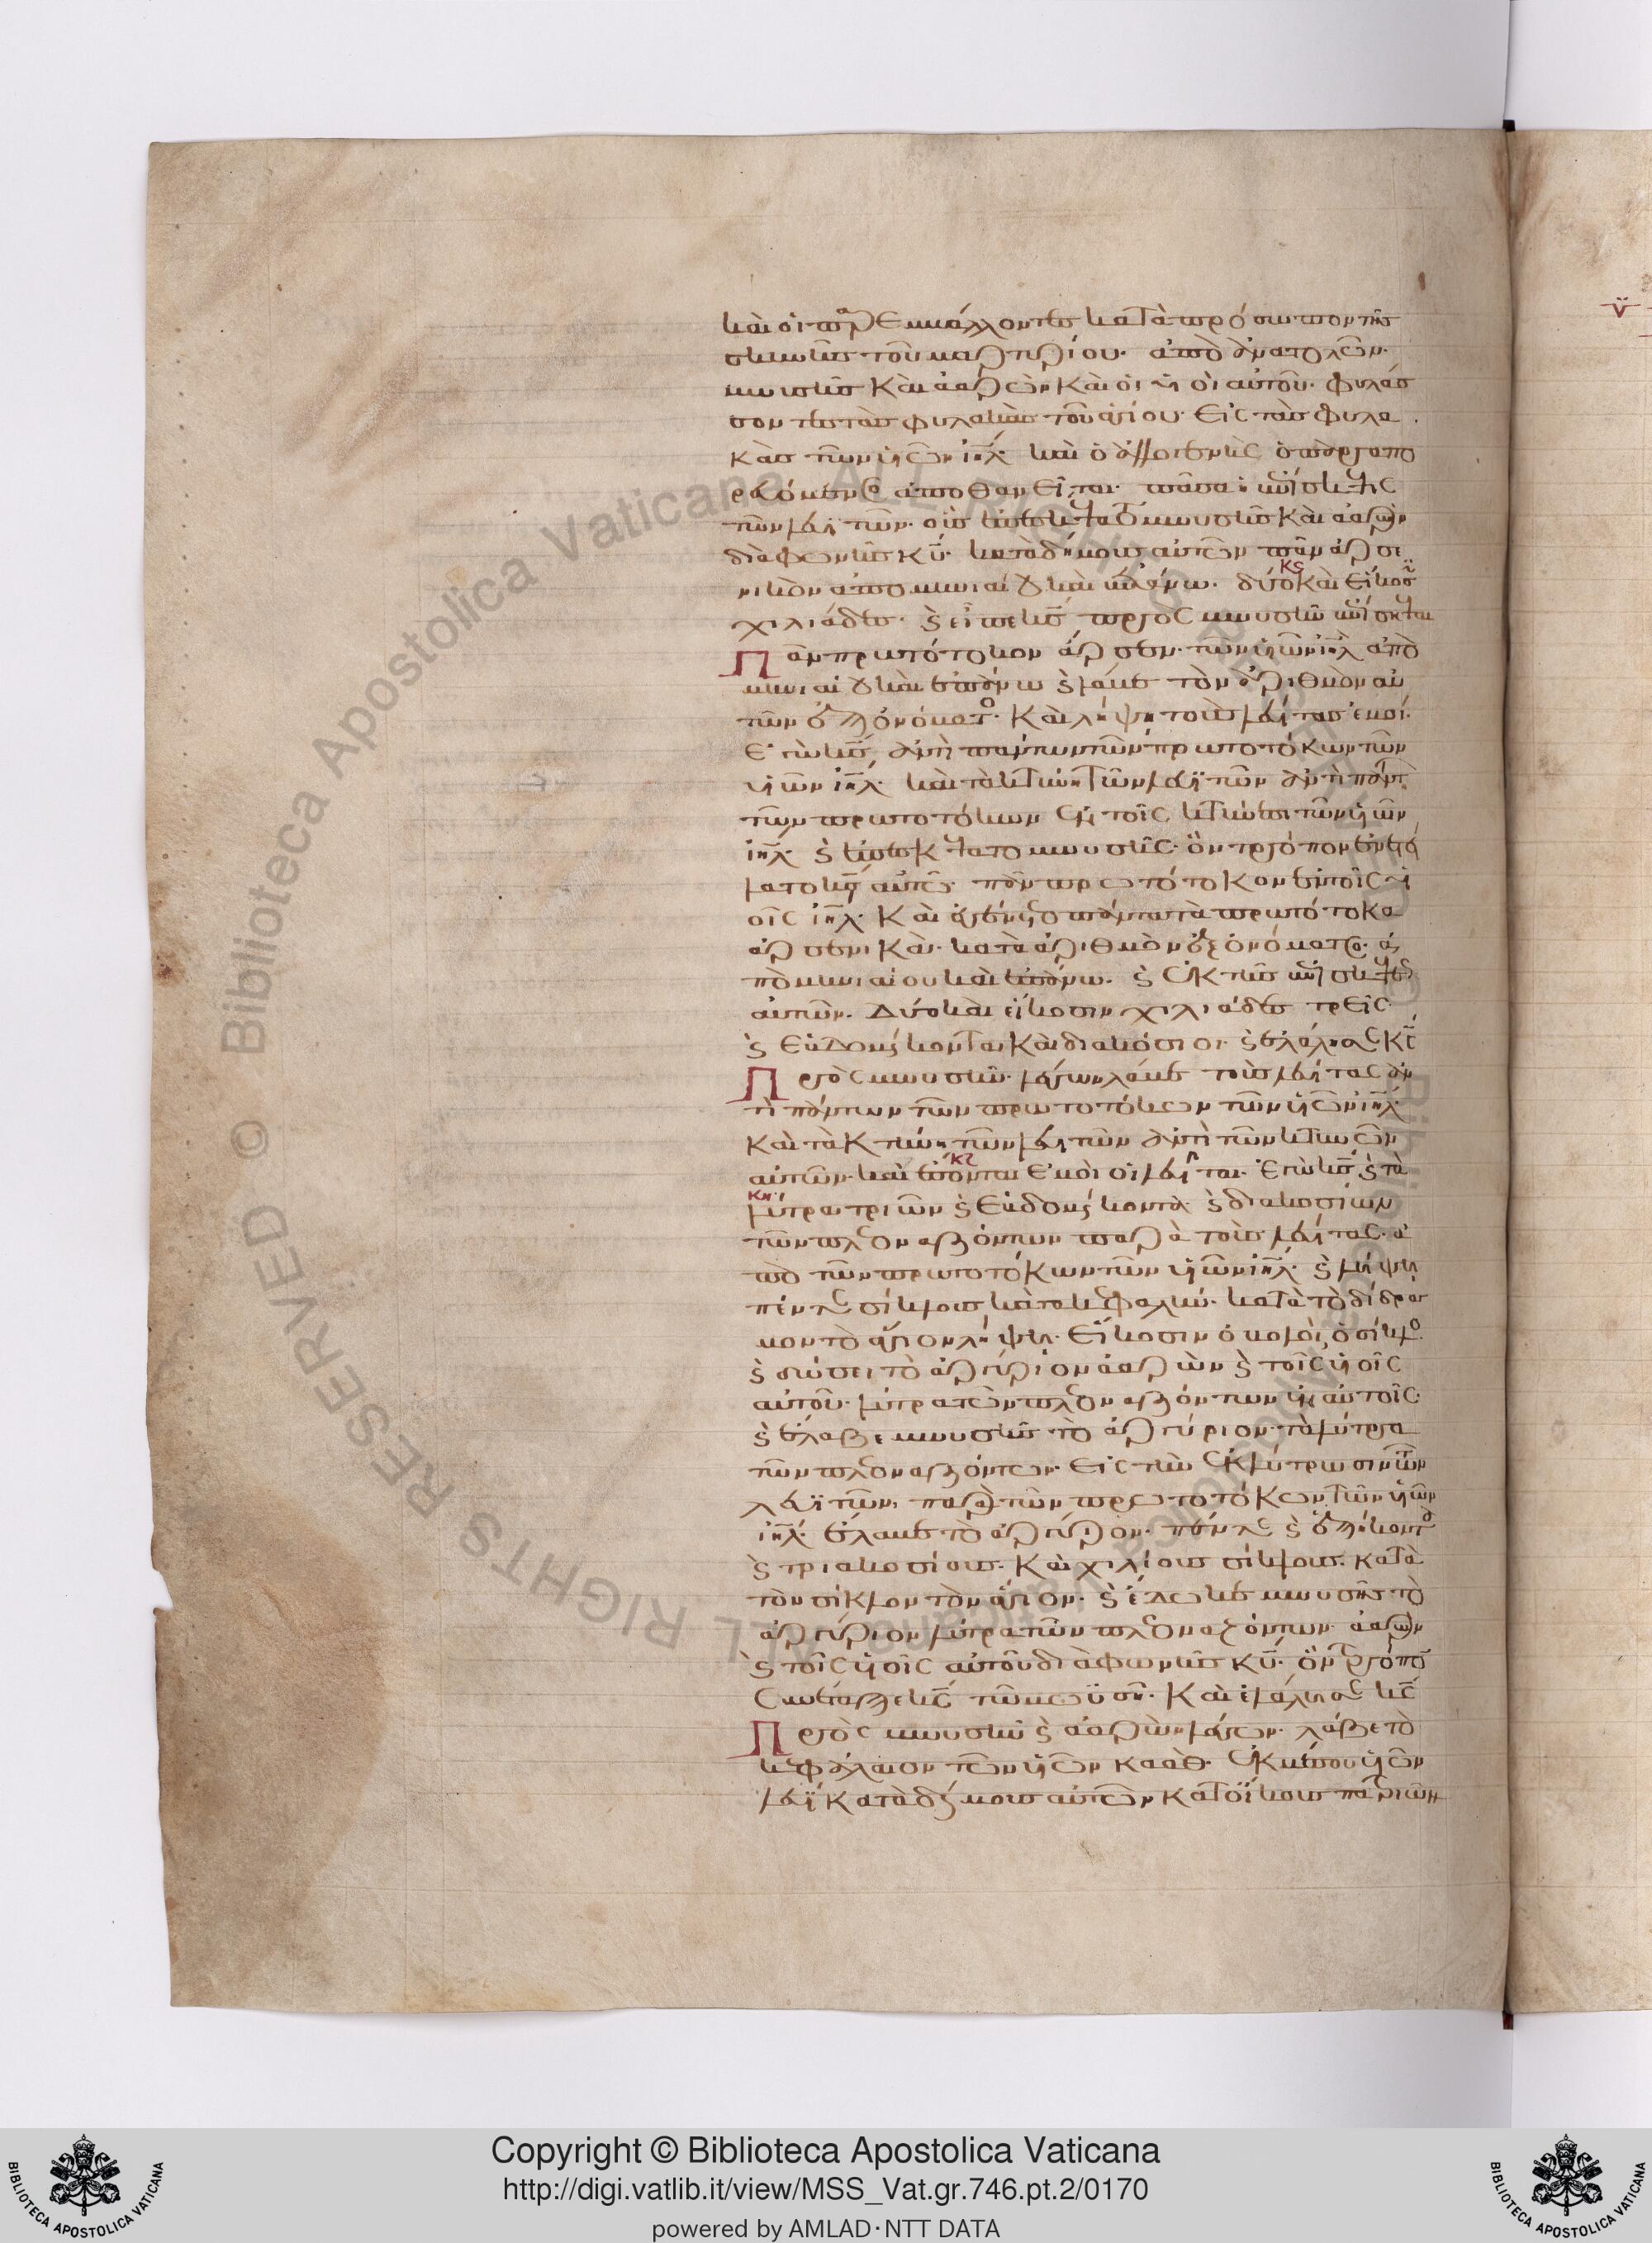 καὶ οἱ παρεμβάλλοντες κατὰ πρόσωπον τῆς
σκηνῆς τοῦ μαρτυρίου· ἀπὸ ἀνατολῶν·
μωυσῆς καὶ ἀαρὼν καὶ οἱ υἱοὶ αὐτοῦ· φυλάσ
σοντες τὰς φυλακὰς τοῦ ἁγίου· εἰς τὰς φυλα
κὰς τῶν υἱῶν ἰηλ· καὶ ὁ ἀλλογενὴς ὁ προσπο
ρευόμενος ἀποθανεῖται· πᾶσα ἡ ἐπίσκεψις
τῶν λευϊτῶν· οὓς ἐπεσκέψατο μωυσῆς καὶ ἀαρὼν
διὰ φωνῆς κυ· κατὰ δήμους αὐτῶν πᾶν ἀρσε
νικὸν ἀπὸ μηνιαίου καὶ ἐπάνω· δύο καὶ εἴκοσι
κς
χιλιάδες· καὶ εἶπε κς πρὸς μωυσῆν ἐπίσκεψαι
Πᾶν πρωτότοκον ἄρσεν· τῶν υἱῶν ἰηλ ἀπὸ
μηνιαίου καὶ ἐπάνω καὶ λάβε τὸν ἀριθμὸν αὐ
τῶν ἐξ ὀνόματος· καὶ λήψη τοὺς λευίτας ἐμοί·
ἐγὼ κς ἀντὶ πάντων τῶν πρωτοτόκων τῶν
υἱῶν ἰηλ· καὶ τὰ κτήνη τῶν λευϊτῶν ἀντὶ πάντ
των πρωτοτόκων ἐν τοῖς κτήνεσι τῶν υἱῶν
ἰηλ· καὶ ἐπεσκέψατο μωυσῆς· ὃν τρόπον ἐνετεί
λατο κς αὐτῶ· πᾶν πρωτότοκον ἐν τοῖς υἱ
οῖς ἰηλ· καὶ ἐγένετο πάντα τὰ πρωτότοκα
ἀρσενικὰ· κατὰ ἀριθμὸν ἐξ ὀνόματος· ἀ
πὸ μηνιαίου καὶ ἐπάνω· καὶ ἐκ τῆς ἐπισκέψεως
αὐτῶν· δύο καὶ εἴκοσιν χιλιάδες τρεῖς·
καὶ ἑβδομήκοντα καὶ διακόσιοι· καὶ ἐλάλησε κς
Πρὸς μωυσῆν· λέγων λάβε τοὺς λευίτας ἀν
τὶ πάντων τῶν πρωτοτόκων τῶν υἱῶν ἰηλ·
καὶ τὰ κτήνη τῶν λευιτῶν ἀντὶ τῶν κτηνῶν
αὐτῶν· καὶ ἔσονται ἐμοὶ οἱ λευῖται· ἐγὼ κς· καὶ τὰ
κζ
κη
λύτρα τριῶν καὶ ἑβδομήκοντα· καὶ διακοσίων
τῶν πλεοναζόντων παρὰ τοὺς λευίτας· ἀ
πὸ τῶν πρωτοτόκων τῶν υἱῶν ἰηλ· καὶ λήψη
πέντε σίκλους κατὰ κεφαλήν· κατὰ τὸ δίδραχ
μον τὸ ἅγιον λήψη· εἴκοσιν ὀβολοὶ, ὁ σίκλος·
καὶ δώσει τὸ ἀργύριον ἀαρὼν καὶ τοῖς υἱοῖς
αὐτοῦ· λύτρα τῶν πλεοναζόντων ἐν αὐτοῖς·
καὶ ἔλαβε μωυσῆς τὸ ἀργύριον· τὰ λύτρα
τῶν πλεοναζόντων· εἰς τὴν ἐκλύτρωσιν τῶν
λευϊτῶν, παρὰ τῶν πρωτοτόκων τῶν υἱῶν
ἰηλ· ἔλαβε τὸ ἀργύριον· πέντε καὶ ἑξήκοντα
καὶ τριακοσίους· καὶ χιλίους σίκλους· κατὰ
τὸν σίκλον τὸν ἅγιον· καὶ ἔδωκε μωυσῆς τὸ
ἀργύριον λύτρα τῶν πλεοναζόντων ἀαρὼν
καὶ τοῖς υἱοῖς αὐτοῦ διὰ φωνῆς κυ· ὃν τρόπον
συνέταξε κς τῶ μωϋσῆ· καὶ ἐλάλησε κς
Πρὸς μωυσῆν καὶ ἀαρὼν λέγων· λάβε τὸ
κεφάλαιον τῶν υἱῶν καάθ· ἐκ μέσου υἱῶν
λευῒ κατὰ δήμους αὐτῶν κατ' οἴκους πατριῶν
BIBLIOTECA APOSTOLICA VATICANA
Copyright © Biblioteca Apostolica Vaticana
http://digi.vatlib.it/view/MSS_Vat.gr.746.pt.2/0170
powered by AMLAD·NTT DATA
BIBLIOTECA APOSTOLICA VATICANA